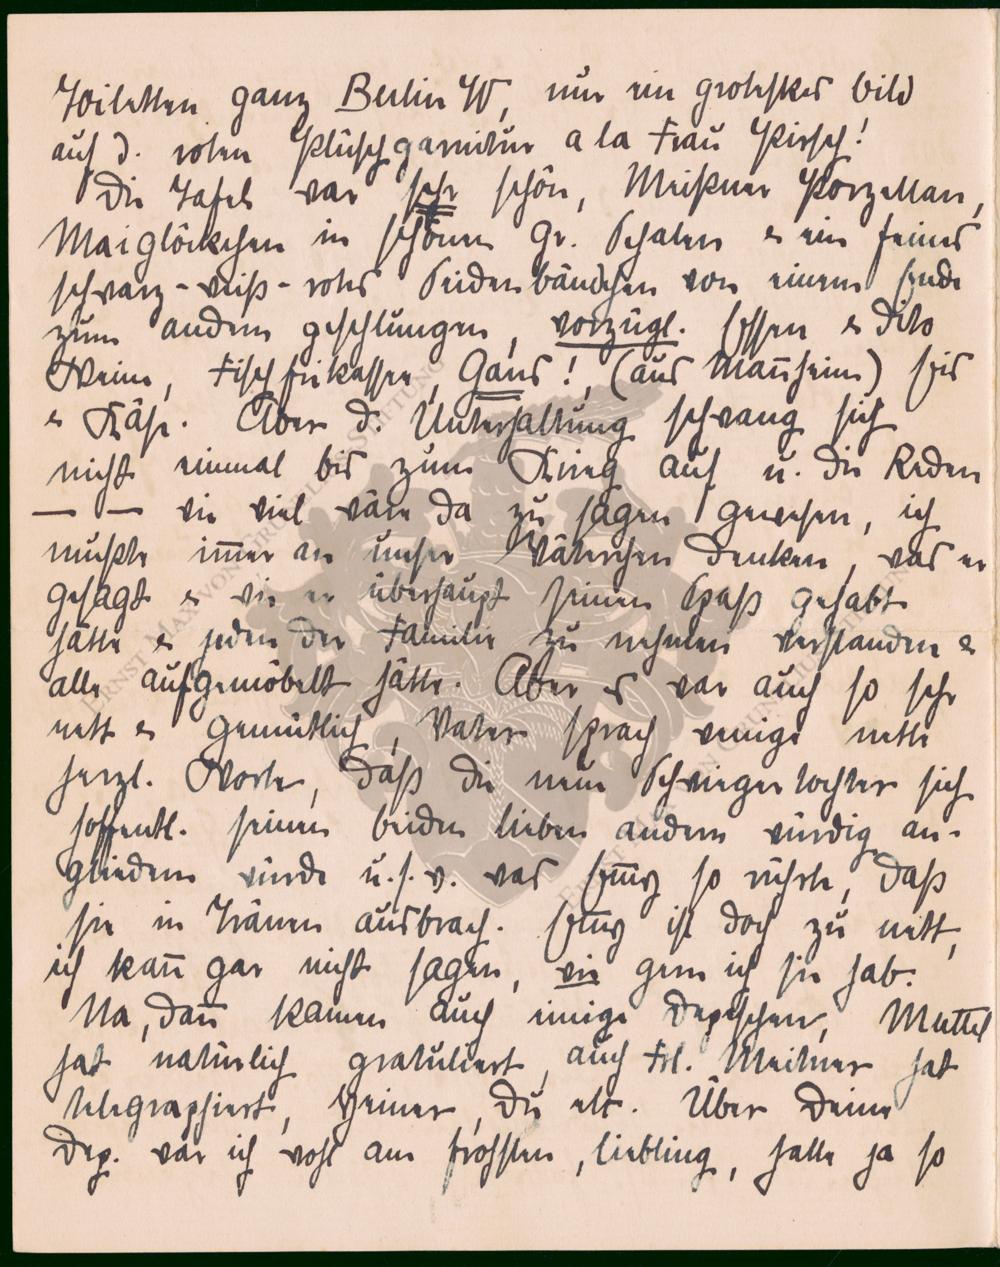 Toiletten ganz Berlin W, nur ein groteskes bild
auf d. roten Plüschgarnitur a la Frau Pirsch!
Die Tafel war sehr schön, Meißner Porzellan,
Maiglöckchen in schönen gr. Schalen & ein feines
schwarz-weiß-rotes Seidenbändchen von einem Ende
zum andern geschlungen, vorzügl. Essen & dito
Weine, Fischfrikassee, Gans! (aus Mañheim) Eis
& Käse. Aber d. Unterhaltung schwang sich
nicht einmal bis zum Krieg auf u. die Reden
— — wie viel wäre da zu sagen gewesen, ich
mußte im̄er an unser Väterchen denken, was er
gesagt & wie er überhaupt seinen Spaß gehabt
hätte & jeden der Familie zu nehmen verstanden &
alle aufgemöbelt hätte. Aber es war auch so sehr
nett & gemütlich, Vater sprach wenige nette
herzl. Worte, daß die neue Schwiegertochter sich
hoffentl. seinen beiden lieben andern würdig an-
gliedern würde u.s.w. was Em̄y so rührte, daß
sie in Tränen ausbrach. Em̄y ist doch zu nett,
ich kañ gar nicht sagen, wie gern ich sie hab.
Na, dañ kamen auch einige Depeschen, Muttel
hat natürlich gratuliert, auch Frl. Meitner hat
telegraphiert, Heiner, Du etc. Über Deine
Dep. war ich wohl am frohsten, liebling, hatte ja so
ERNST MAX VON GRUNELIUS-STIFTUNG
ERNST MAX VON GRUNELIUS-STIFTUNG